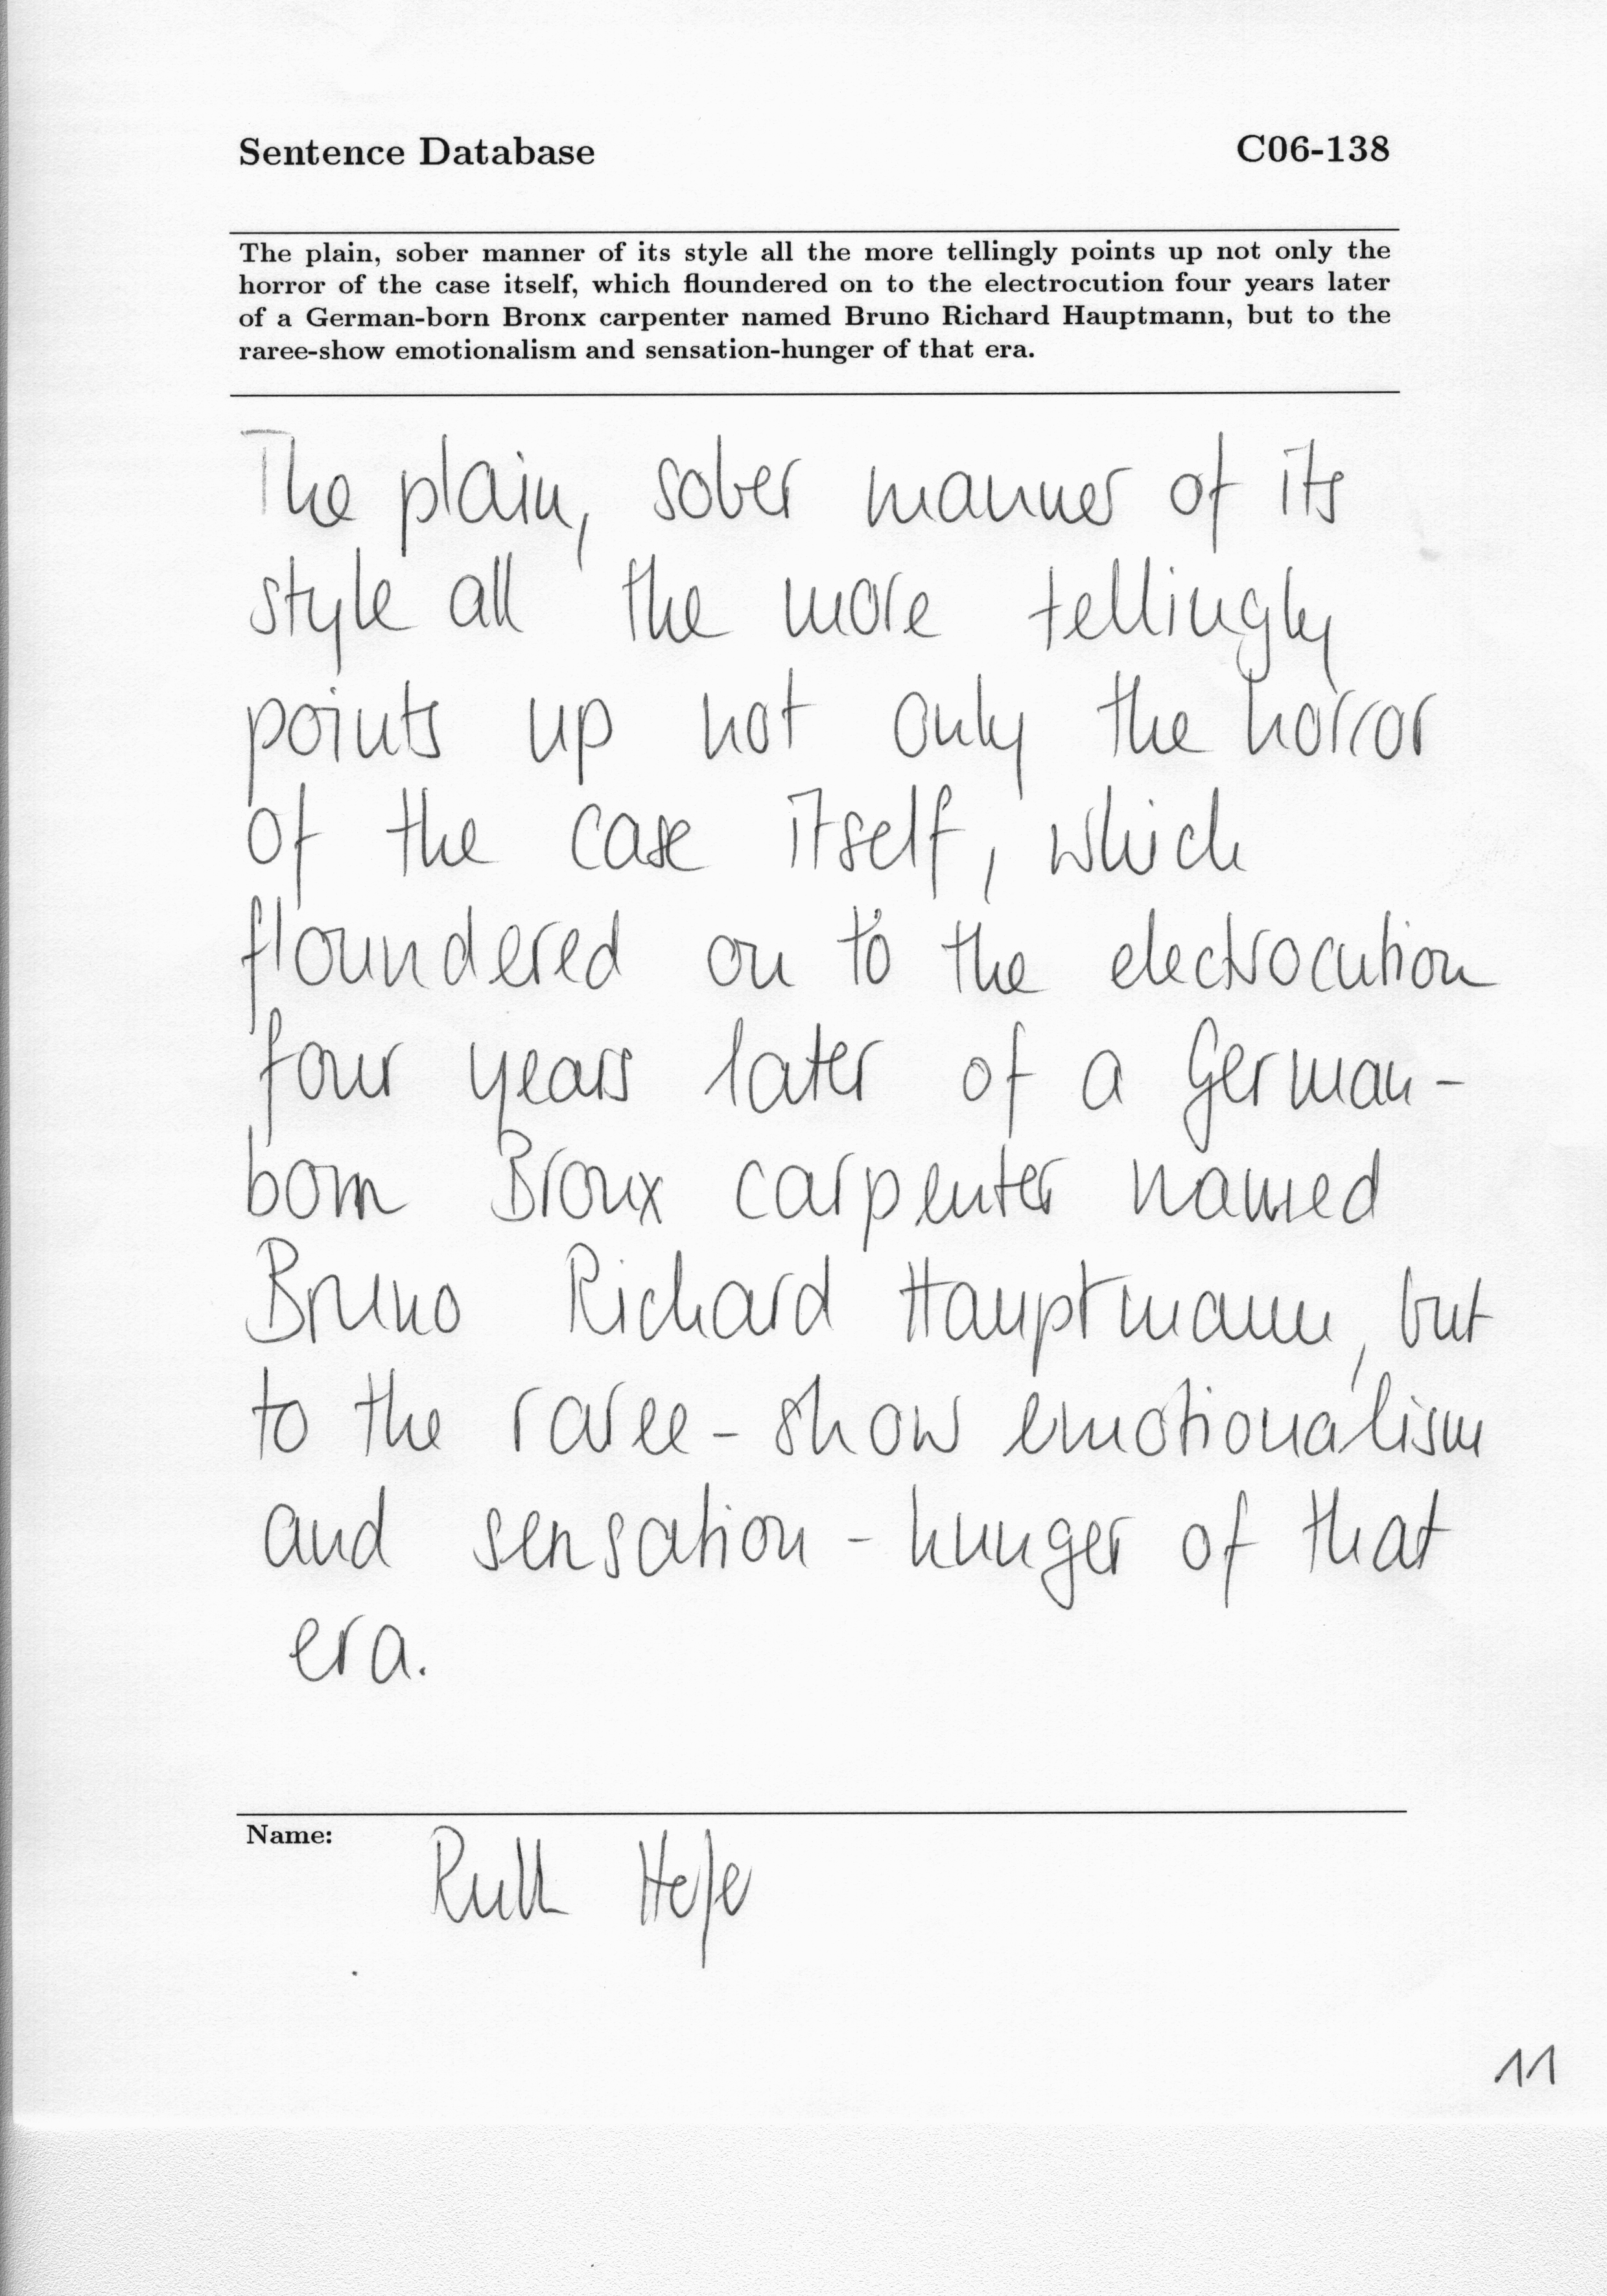 Sentence Database C06-138
The plain, sober manner of its style all the more tellingly points up not only the
horror of the case itself, which floundered on to the electrocution four years later
of a German-born Bronx carpenter named Bruno Richard Hauptmann, but to the
raree-show emotionalism and sensation-hunger of that era.
The plain, sober manner of its
style all the more tellingly
points up not only the horror
of the case itself, which
floundered on to the electrocution
four years later of a German-
born Bronx carpenter named
Bruno Richard Hauptmann, but
to the raree-show emotionalism
and sensation-hunger of that
era.
Name: Ruth
11